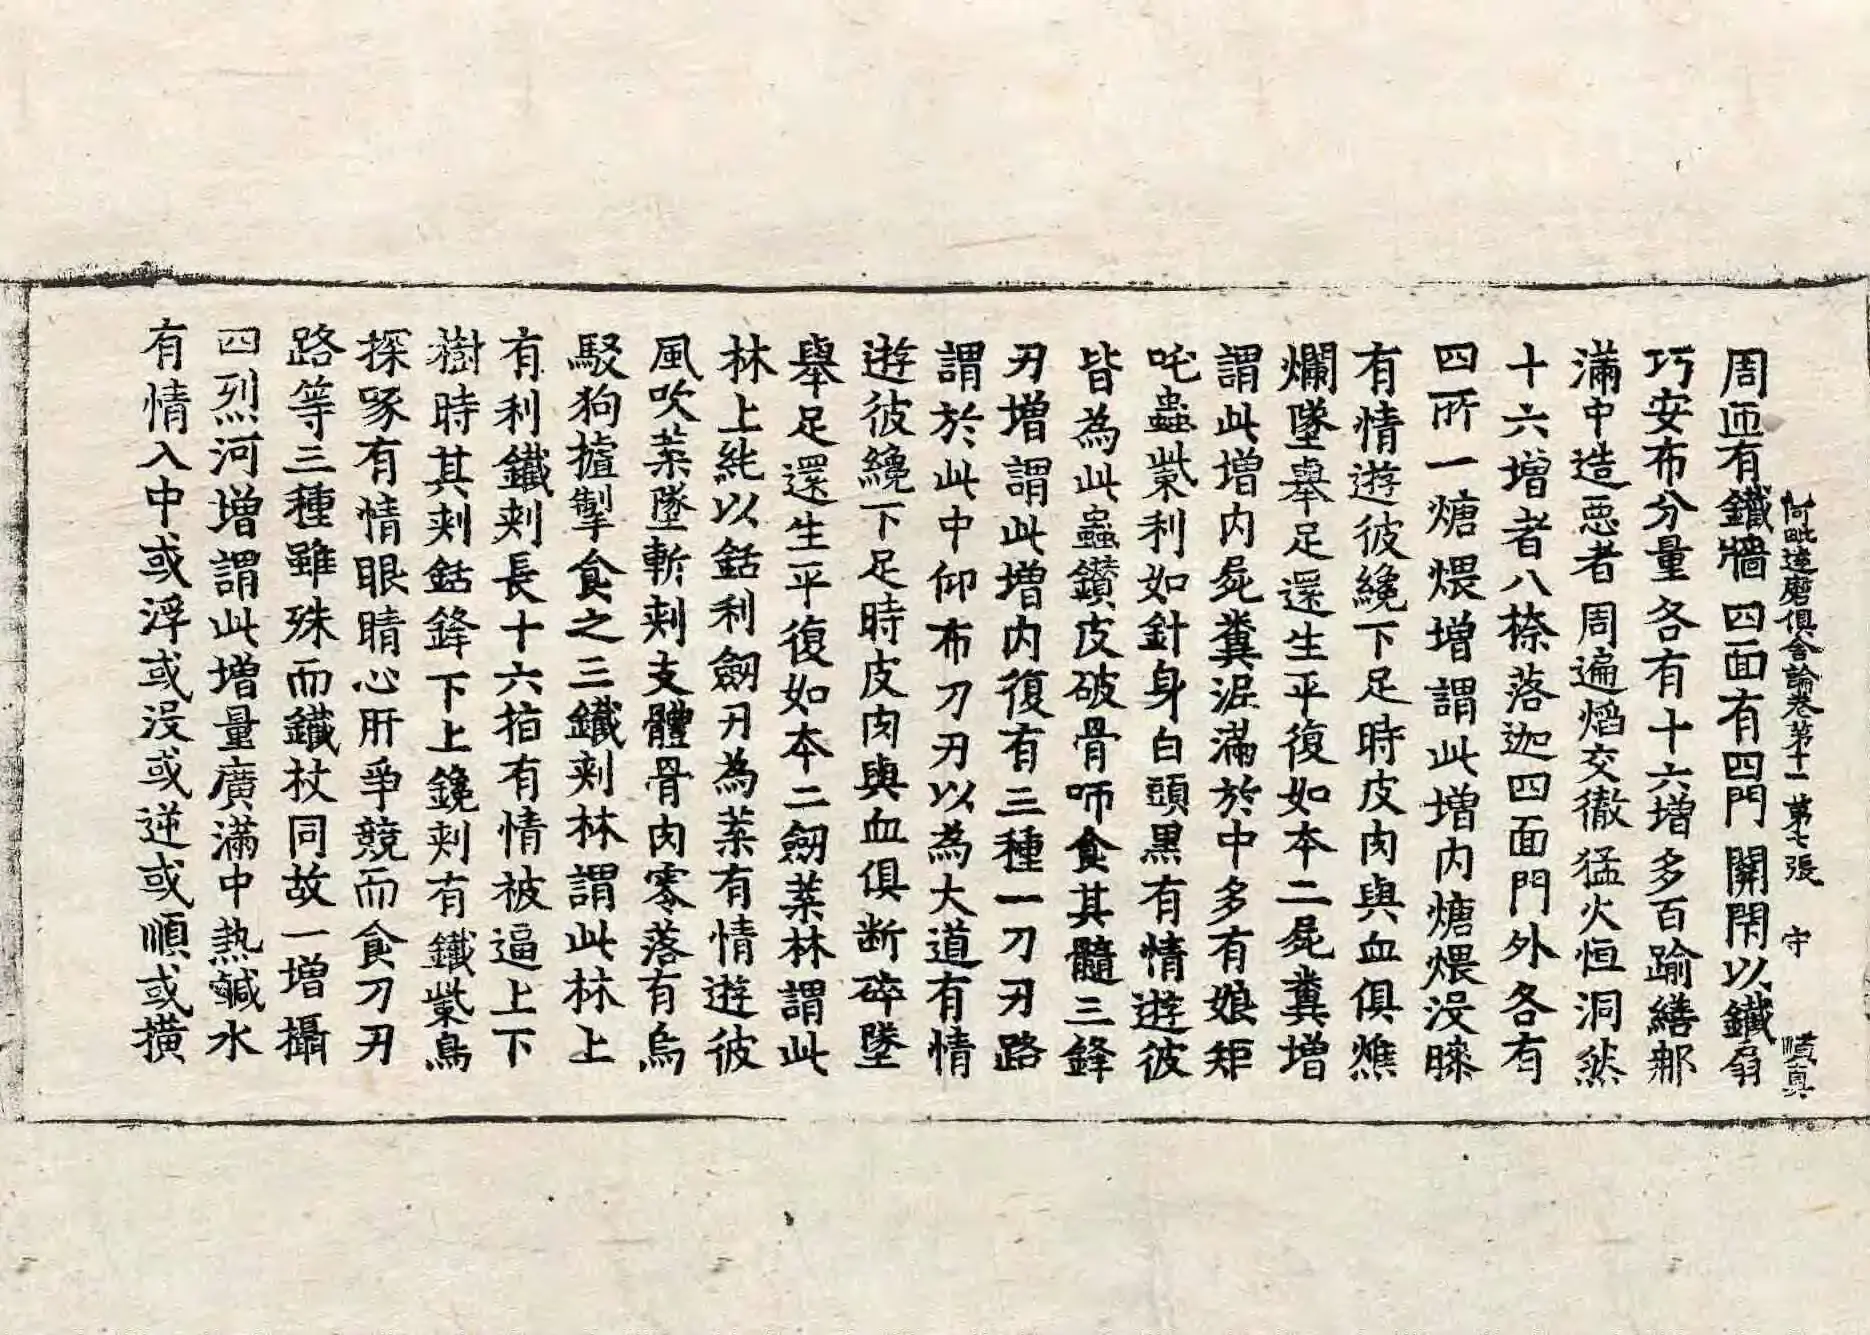 阿毗達磨俱舍論卷第十一 第七張 守 順真
周匝有鐵牆四面有四門關閇以鐵扇
巧安布分量各有十六增多百踰繕那
滿中造惡者周遍焰交徹猛火恒洞然
十六增者八㮈落迦四面門外各有
四所一煻煨增謂此增內煻煨沒膝
有情遊彼纔下足時皮肉與血俱燋
爛墜舉足還生平復如本二屍糞增
謂此增內屍糞泥滿於中多有娘矩
吒蟲㭰利如針身白頭黑有情遊彼
皆為此蟲鑽皮破骨咂食其髓三鋒
刃增謂此增內復有三種一刀刃路
謂於此中仰布刀刃以為大道有情
遊彼纔下足時皮肉與血俱斷碎墜
舉足還生平復如本二劒葉林謂此
林上純以銛利劒刃為葉有情遊彼
風吹葉墜斬刺支體骨肉零落有烏
駮狗摣掣食之三鐵刺林謂此林上
有利鐵刺長十六指有情被逼上下
樹時其刺銛鋒下上鑱刺有鐵㭰鳥
探啄有情眼睛心肝爭競而食刀刃
路等三種雖殊而鐵杖同故一增攝
四烈河增謂此增量廣滿中熱鹹水
有情入中或浮或沒或逆或順或橫